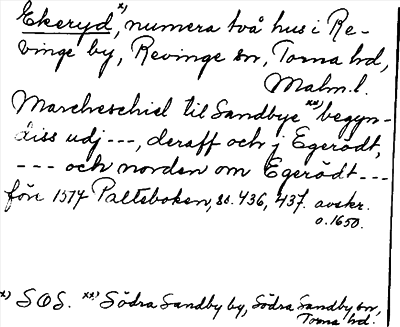 Ekeryd, x) numera två hus i Re-
vinge by, Revinge sn, Torna hd,
Malm. l.
Marcheschiel til Sandbye xx) begyn-
diss udj ---, deraff och j Egerödt,
--- och norden om Egerödt ---
före 1517 Palteboken, ss. 436, 437. avskr.
o. 1650.
x) SOS. xx) Södra Sandby by, Södra Sandby sn,
Torna hd.